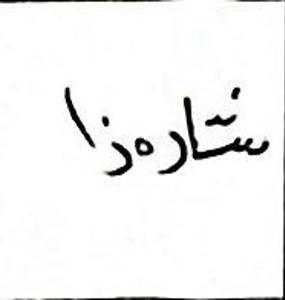 شارەزا